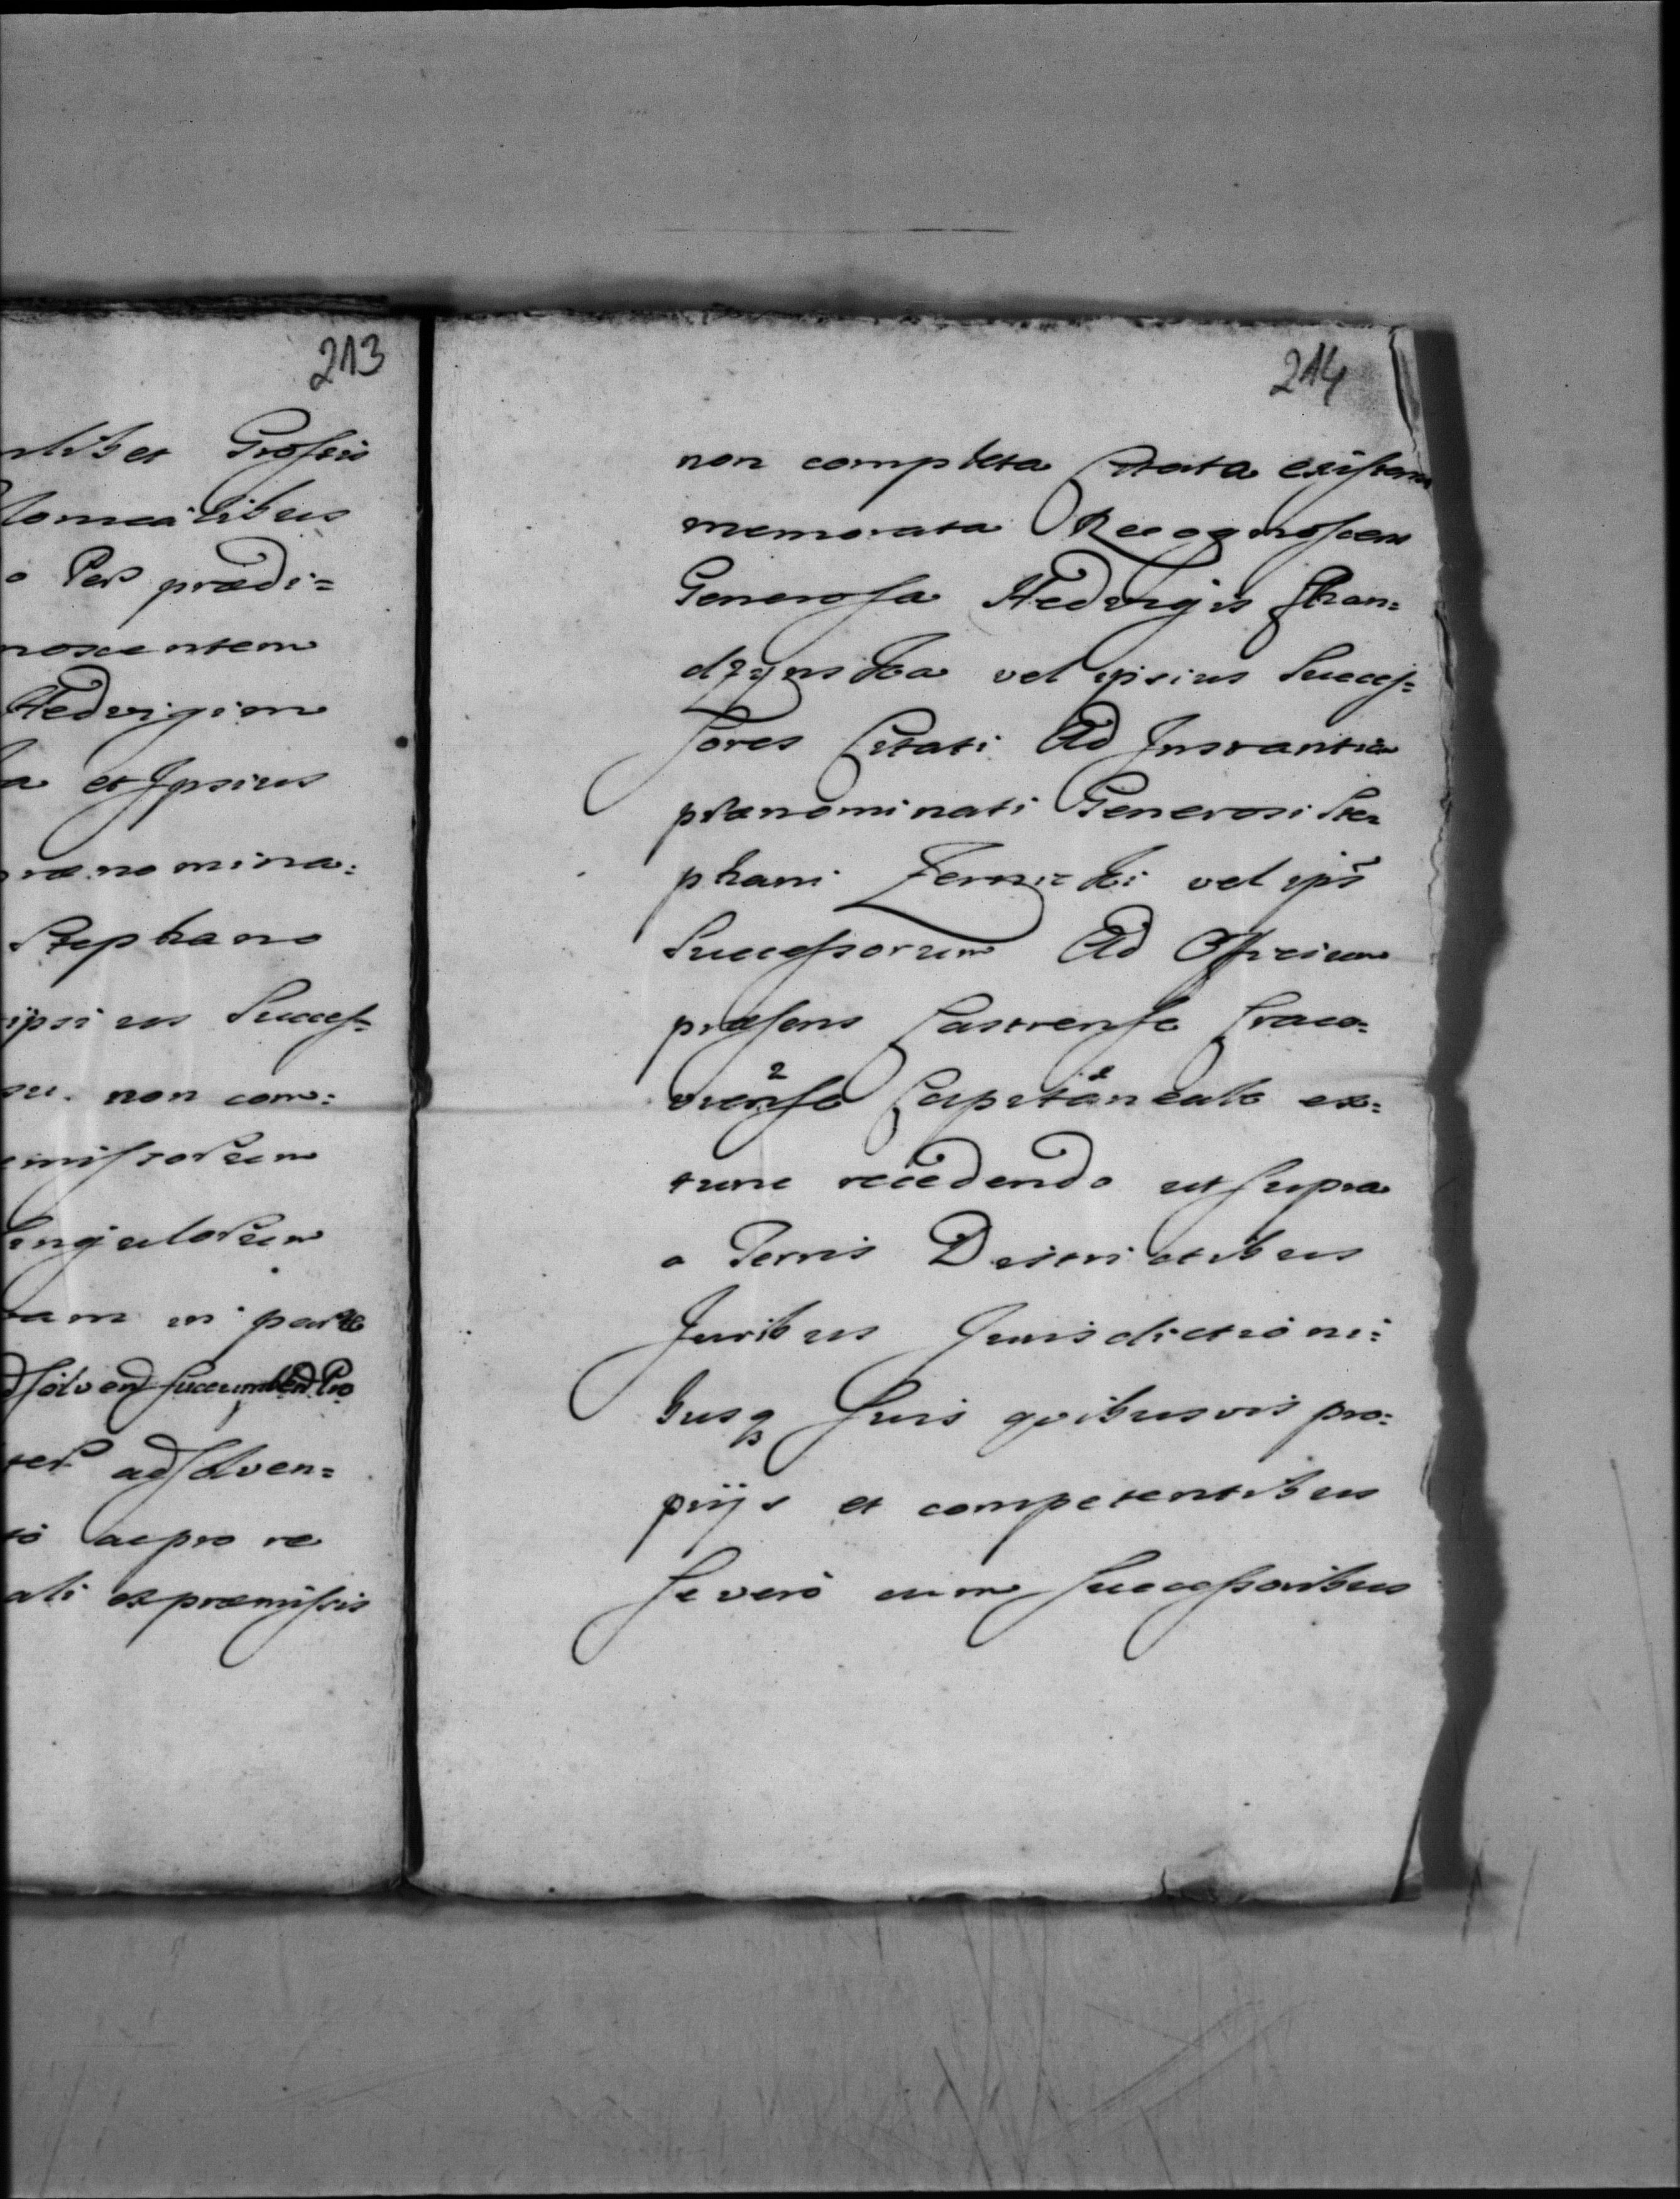 213
libet Grossis
lonicalibus
o Per prædi=
noscentem
Hedvigim
a et Ipsius
rænomina:
Stephano
ipsius Succes=
su. non com:
misſorum
singulorum
tam in parte
dsolvend succumbend Pro
ter adsolven=
to ac pro re
ali ex præmissis
214
non completa Citata existens
memorata Recognoscens
Generosa Hedvigis
dzynska vel ipsius Succes=
sores Citati Ad Instantia
prænominati Generosi Ste=
phani vel ips̃
Successorum Ad Officium
præsens Castrense Craco=
viense Capitaneale ex=
tunc recedendo ut supra
a Terris Districtibus
Juribus Jurisdictioni=
busq Suis quibusvis pro=
prijs et competentibus
se vero cum Successoribus